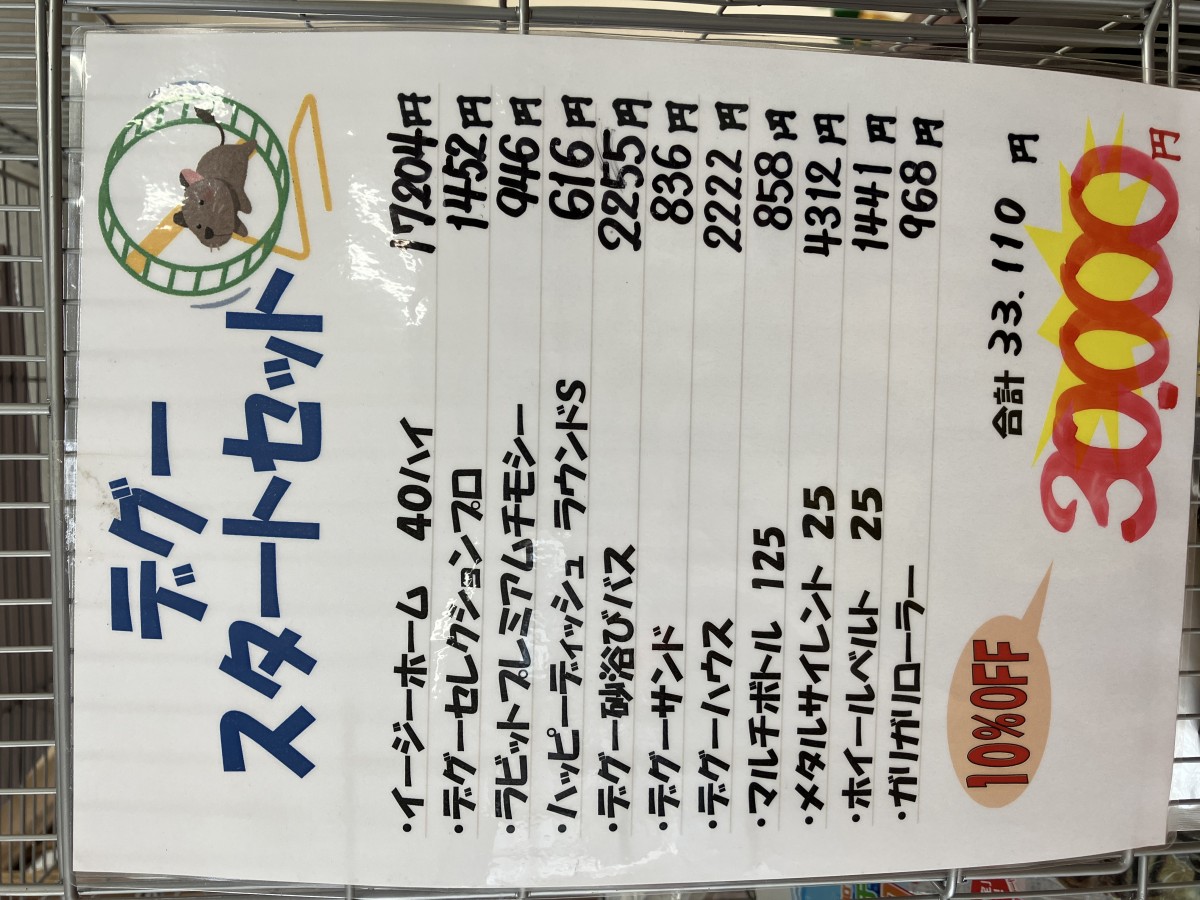 デグー
スタートセット
・イージーホーム 40ハイ 17204円
・デグーセレクションプロ 1452円
・ラビットプレミアムチモシー 946円
・ハッピーディッシュ ラウンドS 616円
・デグー砂浴びバス 2255円
・デグーサンド 836円
・デグーハウス 2222円
・マルチボトル 125 858円
・メタルサイレント 25 4312円
・ホイールベルト 25 1441円
・ガリガリローラー 968円
合計 33.110円
10%OFF
30.000円